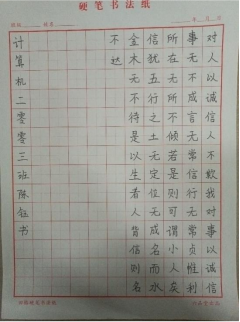 硬笔书法纸
年 月 日
对人以诚信人不欺我对事以诚信
事无不成言无常信行无常贞惟利
所在无所不倾若是则可谓小人矣
信犹五行之土无定位无成名而水
金木无不待是以生者人背信则名
不达
计算机二零零三班陈钰书